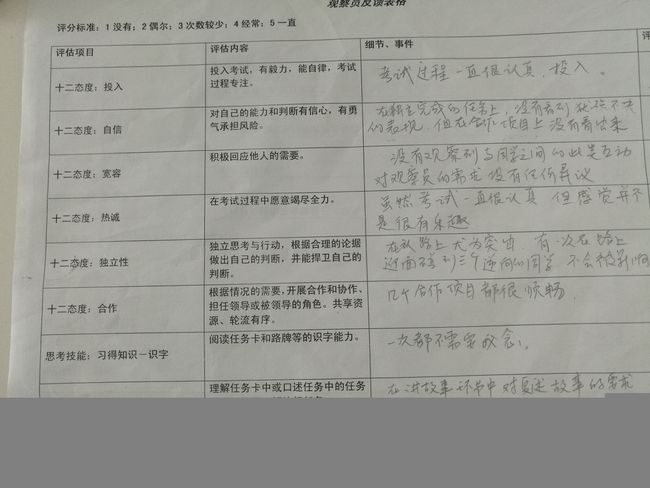 观察员反馈表格
评分标准：1 没有；2 偶尔；3 次数较少；4 经常；5 一直
评估项目 评估内容 细节、事件 评
十二态度：投入
投入考试，有毅力，能自律，考试
过程专注。
考试过程一直很认真、投入。
十二态度：自信
对自己的能力和判断有信心，有勇
气承担风险。
在独立完成的任务上，没有看到状态不
的表现，但在合作项目上没有看出来
十二态度：宽容
积极回应他人的需要。
没有观察到与同学之间的此类互动
对观察员的需求没有任何异议
十二态度：热诚
在考试过程中愿意竭尽全力。
虽然考试一直很认真 但感觉并不
是很有乐趣
十二态度：独立性
独立思考与行动，根据合理的论据
做出自己的判断，并能捍卫自己的
判断。
在认路上尤为突出，有一次在路上
迎面碰到三个逆向的同学 不会被影响
十二态度：合作
根据情况的需要，开展合作和协作、
担任领导或被领导的角色。共享资
源、轮流有序。
几个合作项目都很顺畅，
思考技能：习得知识—识字
阅读任务卡和路牌等的识字能力。
一次都不需要
理解任务卡中或口述任务中的任务
在讲故事环节中对复述故事的需求